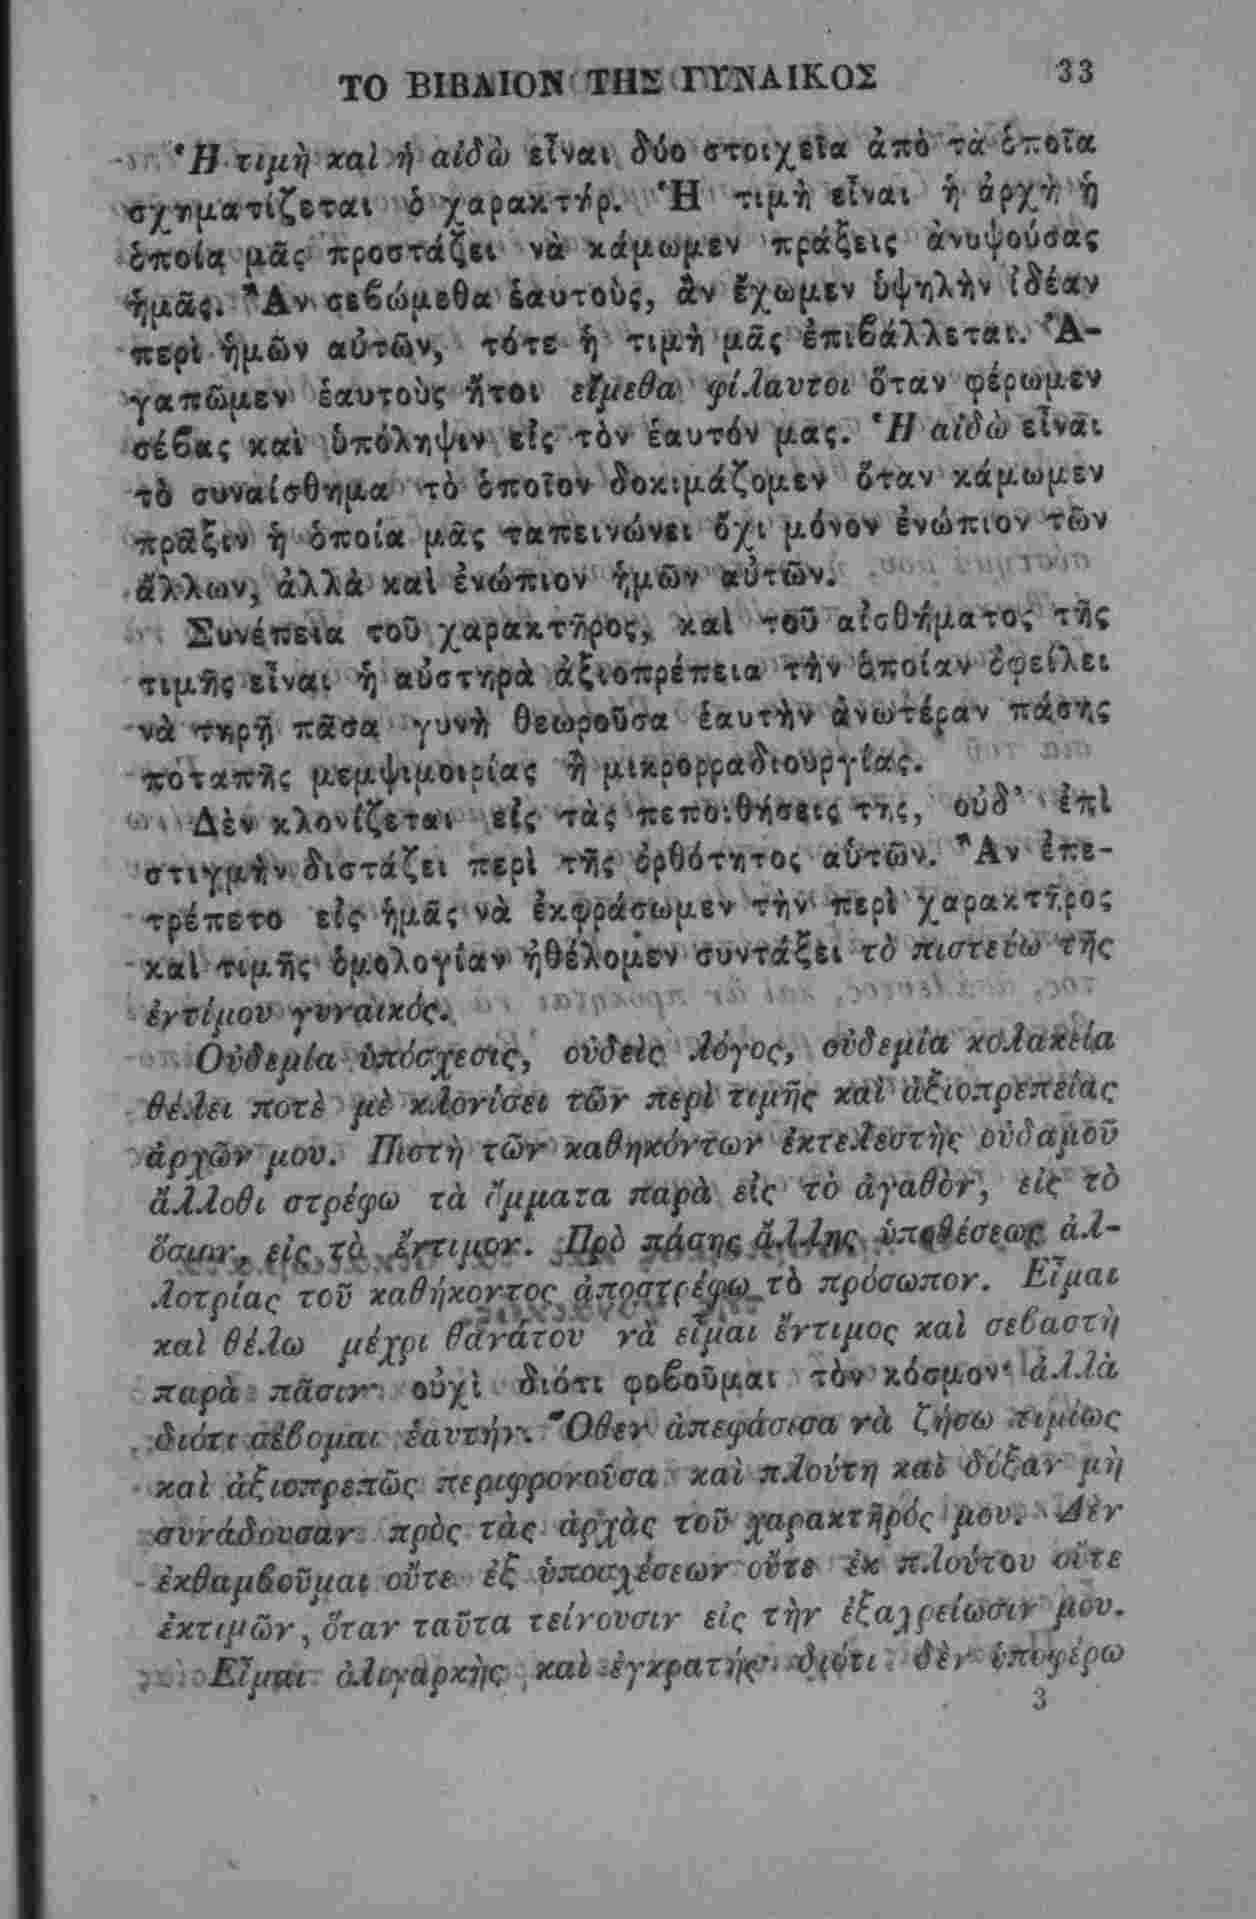 ΤΟ ΒΙΒΛΙΟΝ ΤΗΣ ΓΥΝΑΙΚΟΣ 33
Ἡ τιμὴ καὶ ἡ αἰδὼ εἶναι δύο στοιχεῖα ἀπὸ τὰ ὁποῖα
σχηματίζεται ὁ χαρακτήρ. Ἡ τιμὴ εἶναι ἡ ἀρχὴ ἡ
ὁποία μᾶς προστάζει νὰ κάμωμεν πράξεις ἀνυψούσας
ἡμᾶς. Ἂν σεβώμεθα ἑαυτοὺς, ἂν ἔχωμεν ὑψηλὴν ἰδέαν
περὶ ἡμῶν αὐτῶν, τότε ἡ τιμὴ μᾶς ἐπιβάλλεται. Ἀ-
γαπῶμεν ἑαυτοὺς ἤτοι εἴμεθα φίλαυτοι ὅταν φέρωμεν
σέβας καὶ ὑπόληψιν εἰς τὸν ἑαυτόν μας. Ἡ αἰδὼ εἶναι
τὸ συναίσθημα τὸ ὁποῖον δοκιμάζομεν ὅταν κάμωμεν
πρᾶξιν ἡ ὁποία μᾶς ταπεινώνει ὄχι μόνον ἐνώπιον τῶν
ἄλλων, ἀλλὰ καὶ ἐνώπιον ἡμῶν αὐτῶν.
Συνέπεια τοῦ χαρακτῆρος, καὶ τοῦ αἰσθήματος τῆς
τιμῆς εἶναι ἡ αὐστηρὰ ἀξιοπρέπεια τὴν ὁποίαν ὀφείλει
νὰ τηρῇ πᾶσα γυνὴ θεωροῦσα ἑαυτὴν ἀνωτέραν πάσης
ποταπῆς μεμψιμοιρίας ἢ μικρορραδιουργίας.
Δὲν κλονίζεται εἰς τὰς πεποιθήσεις της, οὐδ' ἐπὶ
στιγμὴν διστάζει περὶ τῆς ὀρθότητος αὐτῶν. Ἂν ἐπε-
τρέπετο εἰς ἡμᾶς νὰ ἐκφράσωμεν τὴν περὶ χαρακτῆρος
καὶ τιμῆς ὁμολογίαν ἠθέλομεν συντάξει τὸ πιστεύω τῆς
ἐντίμου γυναικός.
Οὐδεμία ὑπόσχεσις, οὐδεὶς λόγος, οὐδεμία κολακεία
θέλει ποτὲ μὲ κλονίσει τῶν περὶ τιμῆς καὶ ἀξιοπρεπείας
ἀρχῶν μου. Πιστὴ τῶν καθηκόντων ἐκτελεστὴς οὐδαμοῦ
ἄλλοθι στρέφω τὰ ὄμματα παρὰ εἰς τὸ ἀγαθὸν, εἰς τὸ
ὅσιον, εἰς τὸ ἔντιμον. Πρὸ πάσης ἄλλης ὑποθέσεως ἀλ-
λοτρίας τοῦ καθήκοντος ἀποστρέφω τὸ πρόσωπον. Εἶμαι
καὶ θέλω μέχρι θανάτου νὰ εἶμαι ἔντιμος καὶ σεβαστὴ
παρὰ πᾶσιν· οὐχὶ διότι φοβοῦμαι τὸν κόσμον· ἀλλὰ
διότι σέβομαι ἑαυτήν. Ὅθεν ἀπεφάσισα νὰ ζήσω τιμίως
καὶ ἀξιοπρεπῶς περιφρονοῦσα καὶ πλούτη καὶ δόξαν μὴ
συνάδουσαν πρὸς τὰς ἀρχὰς τοῦ χαρακτῆρός μου. Δὲν
ἐκθαμβοῦμαι οὔτε ἐξ ὑποσχέσεων οὔτε ἐκ πλούτου οὔτε
ἐκτιμῶν, ὅταν ταῦτα τείνουσιν εἰς τὴν ἐξαχρείωσιν μου.
Εἶμαι ὀλιγαρκὴς καὶ ἐγκρατής· διότι δὲν ὑποφέρω
3